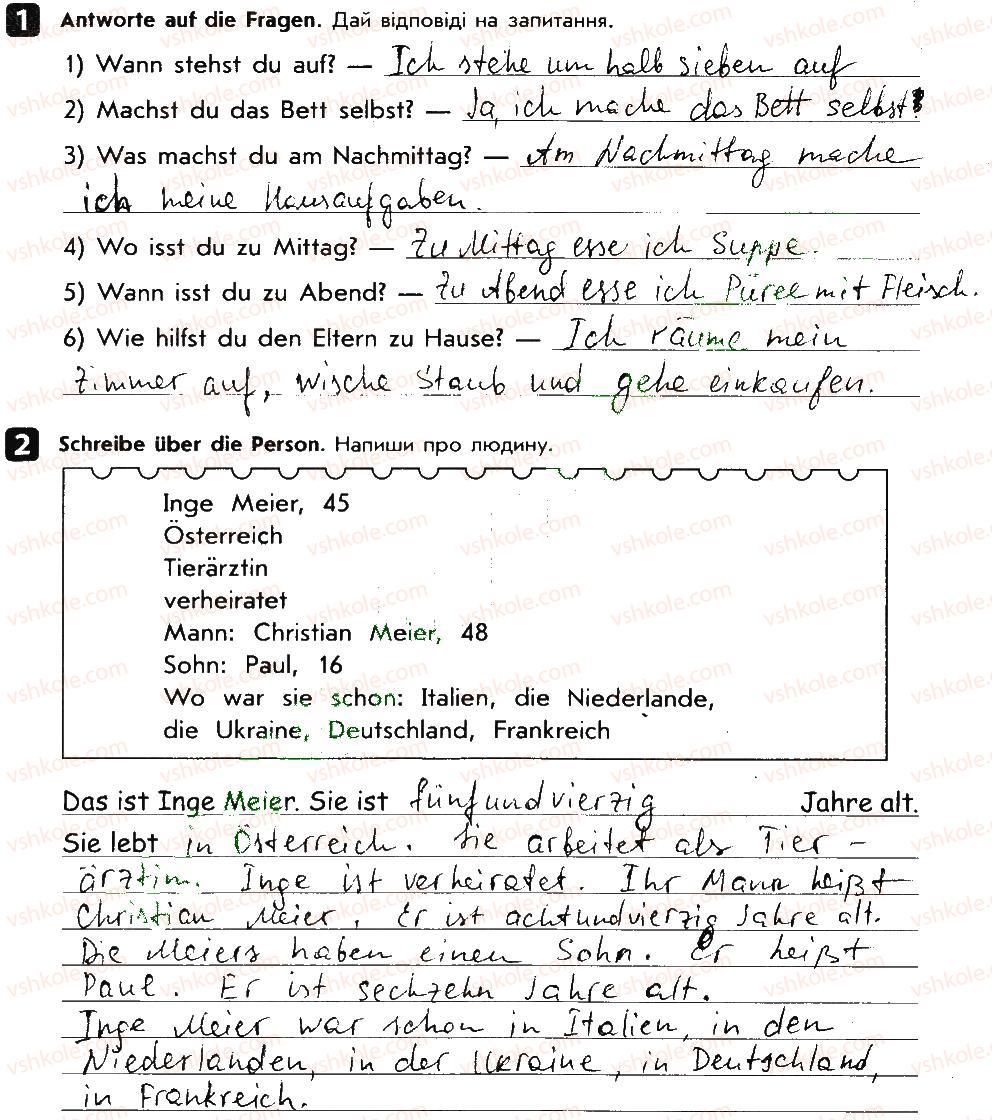 1 Antworte auf die Fragen. Дай відповіді на запитання.
1) Wann stehst du auf? — Ich stehe um halb sieben auf
2) Machst du das Bett selbst? — Ja, ich mache das Bett selbst.
3) Was machst du am Nachmittag? — Am Nachmittag mache
ich meine Hausaufgaben.
4) Wo isst du zu Mittag? — Zu Mittag esse ich Suppe.
5) Wann isst du zu Abend? — Zu Abend esse ich Püree mit Fleisch.
6) Wie hilfst du den Eltern zu Hause? — Ich räume mein
Zimmer auf, wische Staub und gehe einkaufen.
2 Schreibe über die Person. Напиши про людину.
Inge Meier, 45
Österreich
Tierärztin
verheiratet
Mann: Christian Meier, 48
Sohn: Paul, 16
Wo war sie schon: Italien, die Niederlande,
die Ukraine, Deutschland, Frankreich
Das ist Inge Meier. Sie ist fünfundvierzig Jahre alt.
Sie lebt in Österreich. Sie arbeitet als Tier-
ärztin. Inge ist verheiratet. Ihr Mann heißt
Christian Meier. Er ist achtundvierzig Jahre alt.
Die Meiers haben einen Sohn. Er heißt
Paul. Er ist sechzehn Jahre alt.
Inge Meier war schon in Italien, in den
Niederlanden, in der Ukraine, in Deutschland,
in Frankreich.